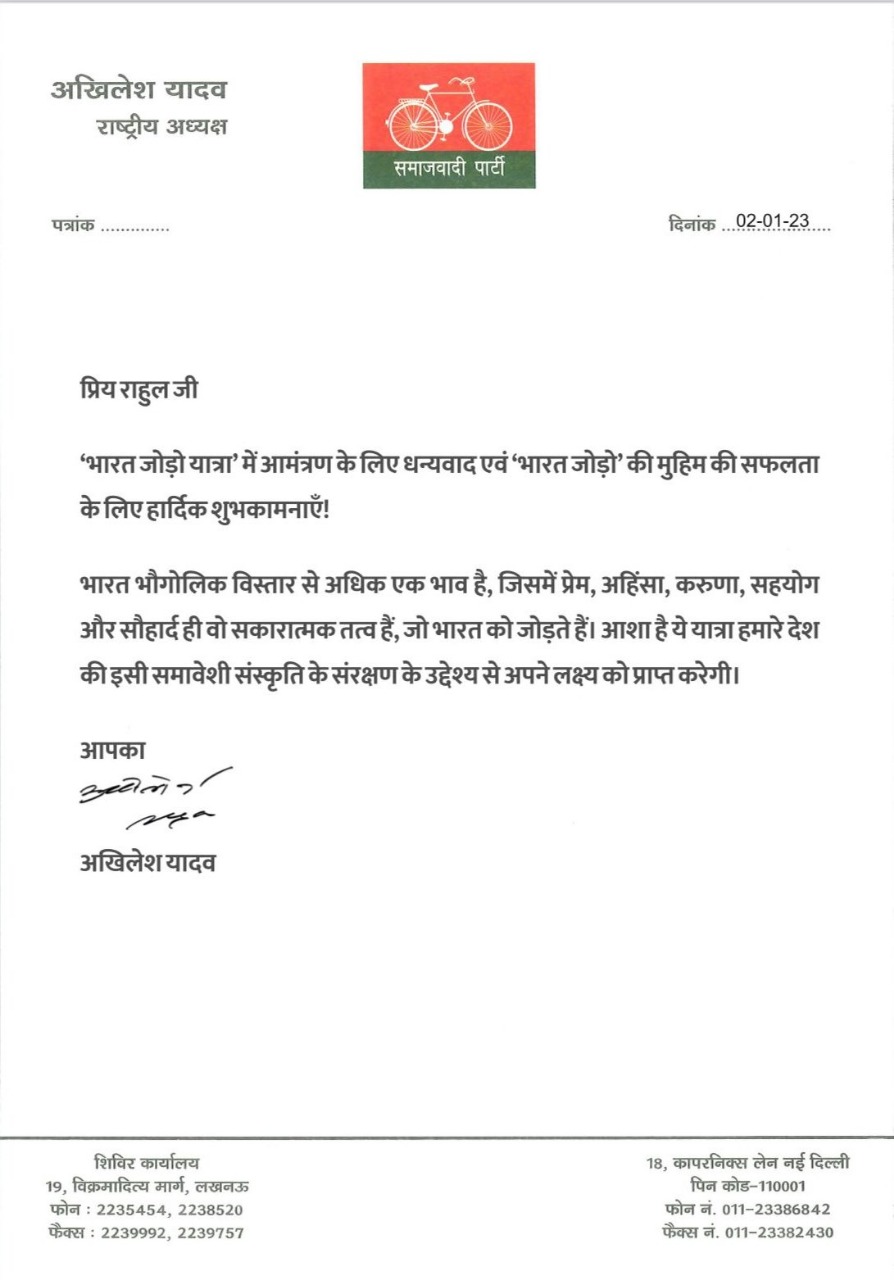 अखिलेश यादव
राष्ट्रीय अध्यक्ष
समाजवादी पार्टी
पत्रांक ..............
दिनांक ...02-01-23....
प्रिय राहुल जी
‘भारत जोड़ो यात्रा’ में आमंत्रण के लिए धन्यवाद एवं ‘भारत जोड़ो’ की मुहिम की सफलता
के लिए हार्दिक शुभकामनाएँ!
भारत भौगोलिक विस्तार से अधिक एक भाव है, जिसमें प्रेम, अहिंसा, करुणा, सहयोग
और सौहार्द ही वो सकारात्मक तत्व हैं, जो भारत को जोड़ते हैं। आशा है ये यात्रा हमारे देश
की इसी समावेशी संस्कृति के संरक्षण के उद्देश्य से अपने लक्ष्य को प्राप्त करेगी।
आपका
अखिलेश यादव
शिविर कार्यालय
19, विक्रमादित्य मार्ग, लखनऊ
फोन : 2235454, 2238520
फैक्स : 2239992, 2239757
18, कापरनिक्स लेन नई दिल्ली
पिन कोड-110001
फोन नं. 011-23386842
फैक्स नं. 011-23382430